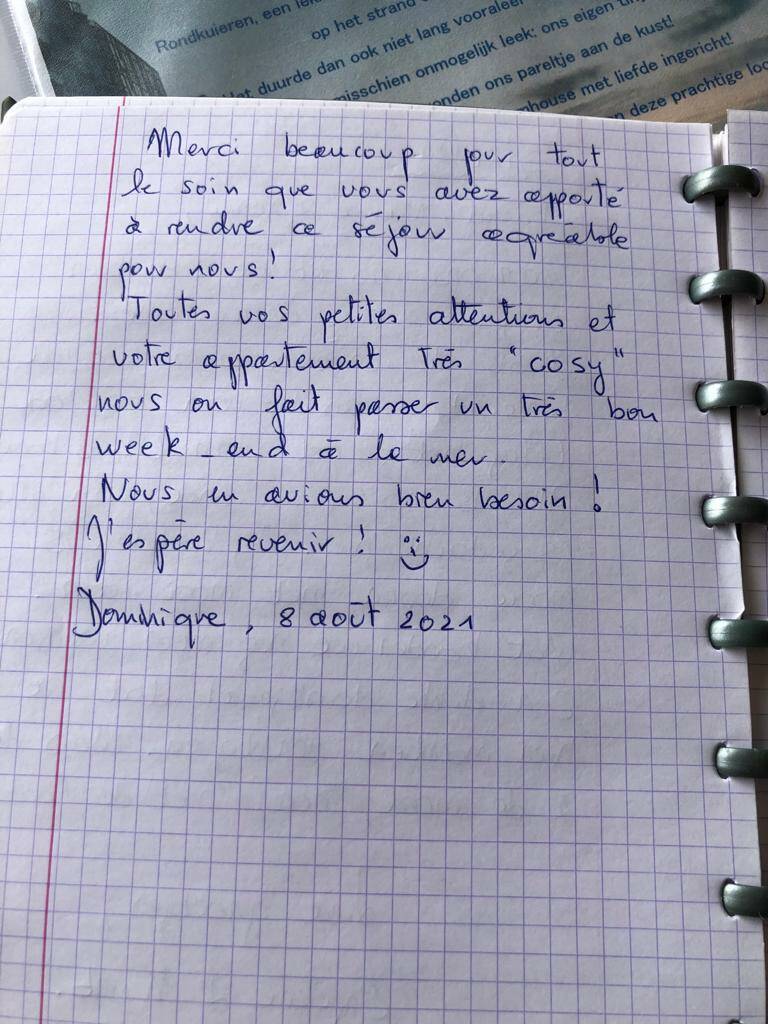 Rondkuieren, een
op het strand
duurde dan ook niet lang vooraleer
misschien onmogelijk leek: ons eigen
onden ons pareltje aan de kust!
house met liefde ingericht!
deze prachtige
Merci beaucoup pour tout
le soin que vous avez apporté
à rendre ce séjour agréable
pour nous!
Toutes vos petites attentions et
votre appartement très "cosy"
nous on fait passer un très bon
week-end à la mer.
Nous en avions bien besoin !
J'espère revenir ! :)
Dominique, 8 août 2021